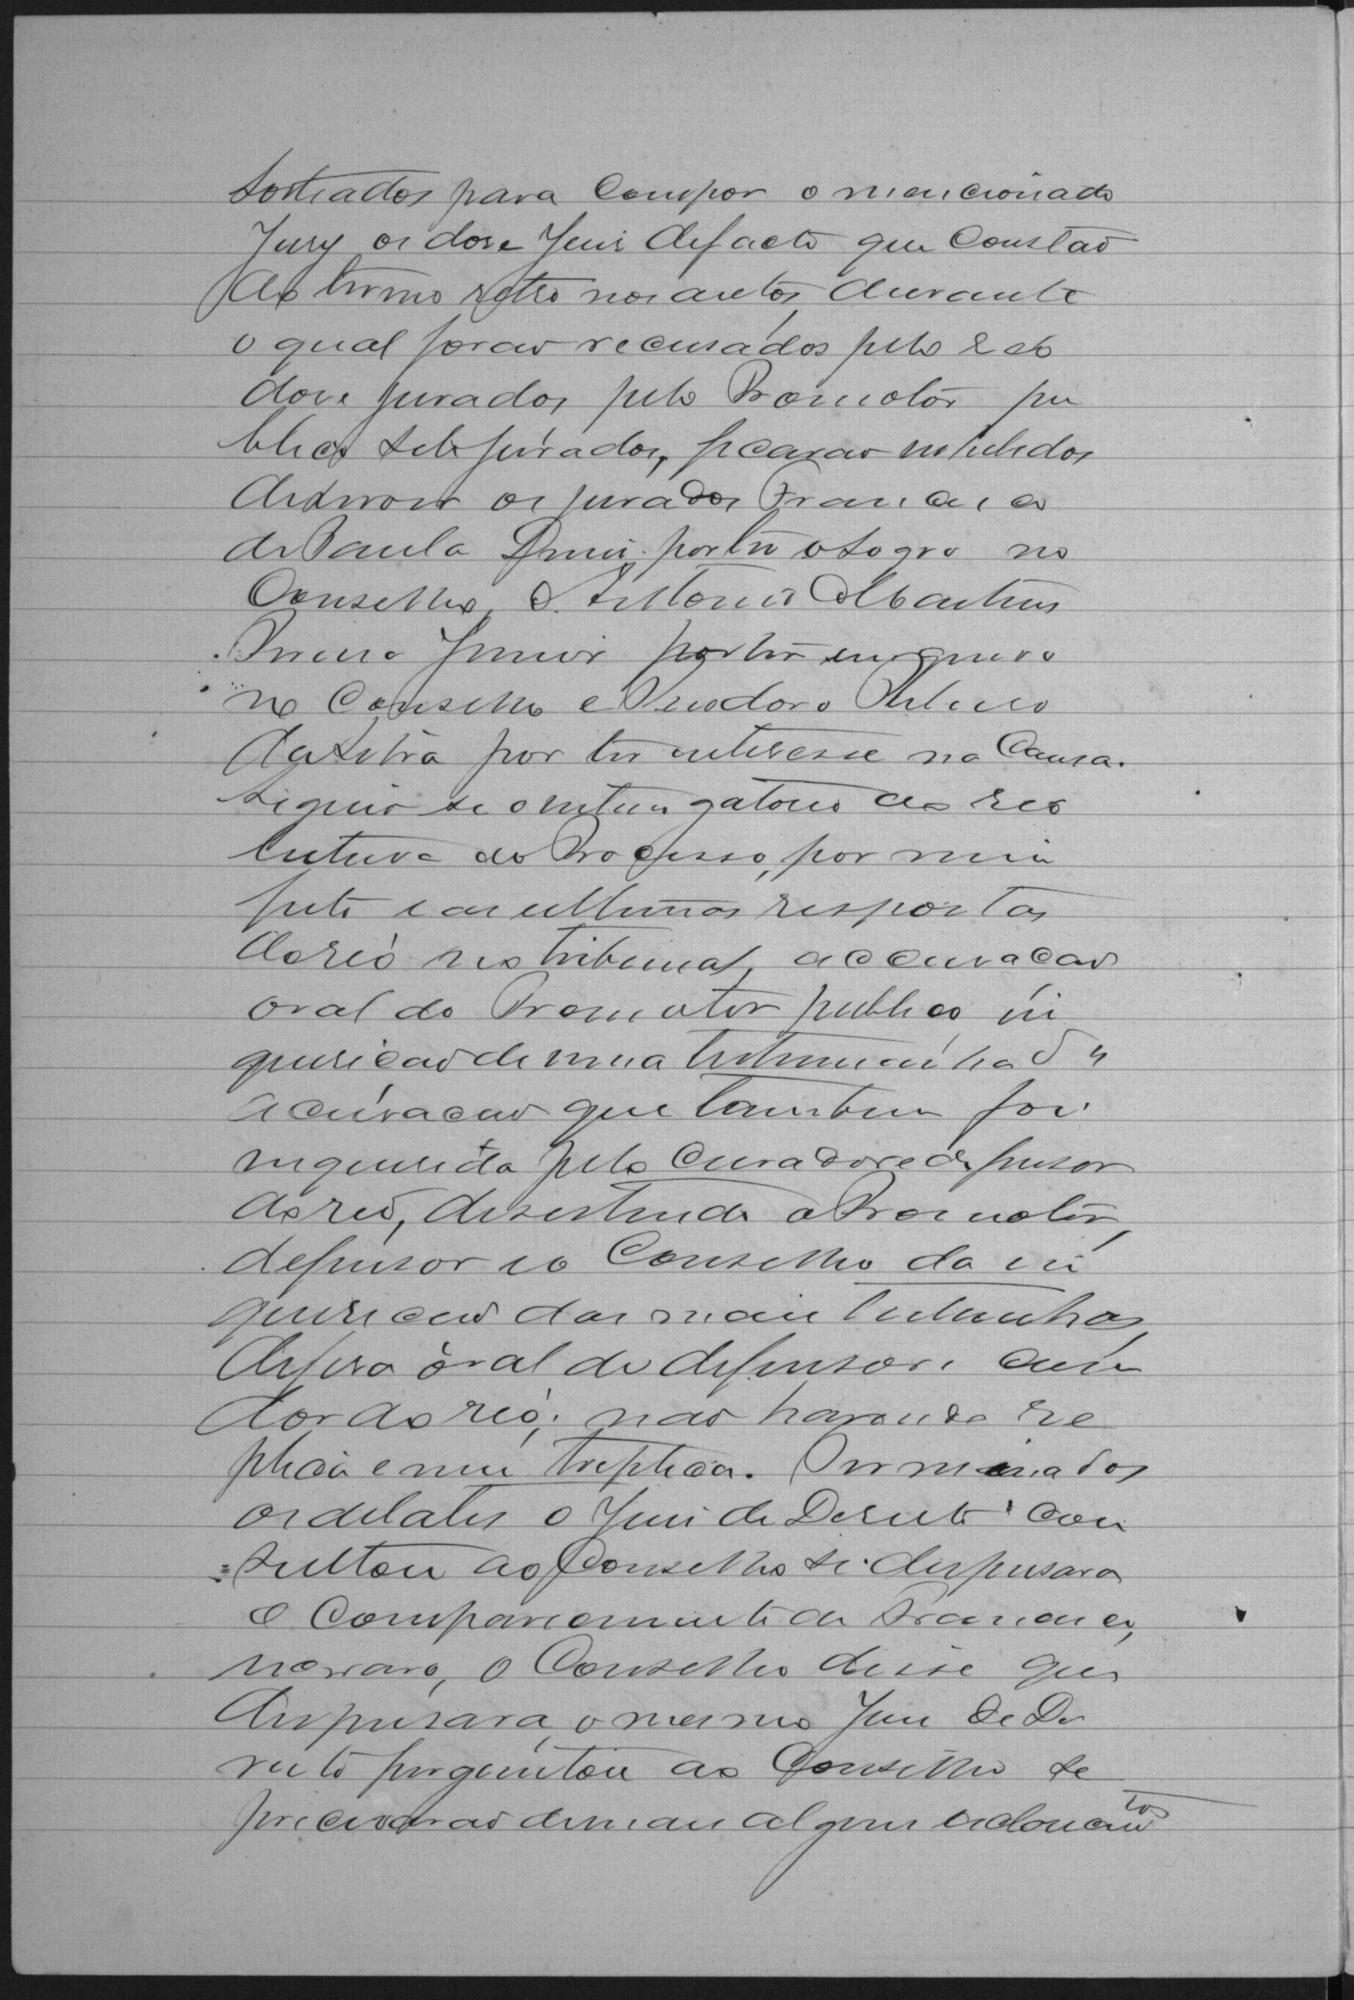 sorteados para compor o mencionado
Jury os dose Juis de facto que constão
do termo retro nos autos, durante
o qual forão recusados pelo reo
dose jurados, pelo Promotor pu
blico sete jurados, ficarão impedidos
de servir os jurados Francisco
de Paula Diniz por ter o sogro no
Conselho, e Antonio Martins
Pereira Junior por ter
no Conselho e Theodoro Ribeiro
da Silva por ter interesse na Causa.
Seguio se o interrogatorio do reo
leitura do Processo, por mim
feita e as ultimas respostas
do reó no tribunal, accusacão
oral do Promotor publico in
quiricão de uma testemunha da
acusacão que tambem foi
inquirida pelo Curador e defensor
do reó, desistindo o Promotor,
defensor e o Conselho da in
quiricão das mais testemunhas,
defesa oral do defensor e cura
dor do reó, não havendo re
plica e nem treplica. Terminados
os debates o Juis de Dereito con
sultou ao Conselho se dispensava
o comparecimento de Francisco
Navarro, o Conselho disse que
dispensava, o mesmo Juis de De
reito perguntou ao Conselho se
precisavão de mais alguns esclarecimentos